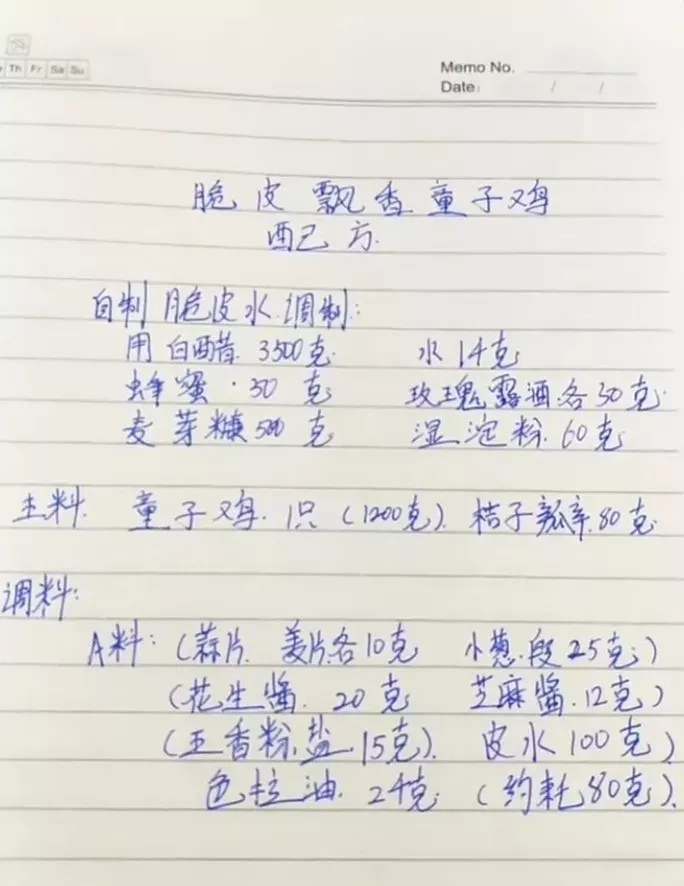 Th Fr Sa Su
Memo No.
Date: / /
脆皮飘香童子鸡
配方.
自制脆皮水调制:
用白醋 3500克 水14克
蜂蜜·30克 玫瑰露酒各50克
麦芽糖500克 湿淀粉.60克
主料. 童子鸡.1只(1200克). 桔子瓤瓣.80克
调料:
A料:(蒜片.姜片各10克 小葱.段25克)
(花生酱.20克 芝麻酱.12克)
(五香粉.盐.15克). 皮水100克)
色拉油.24克 (约耗80克).